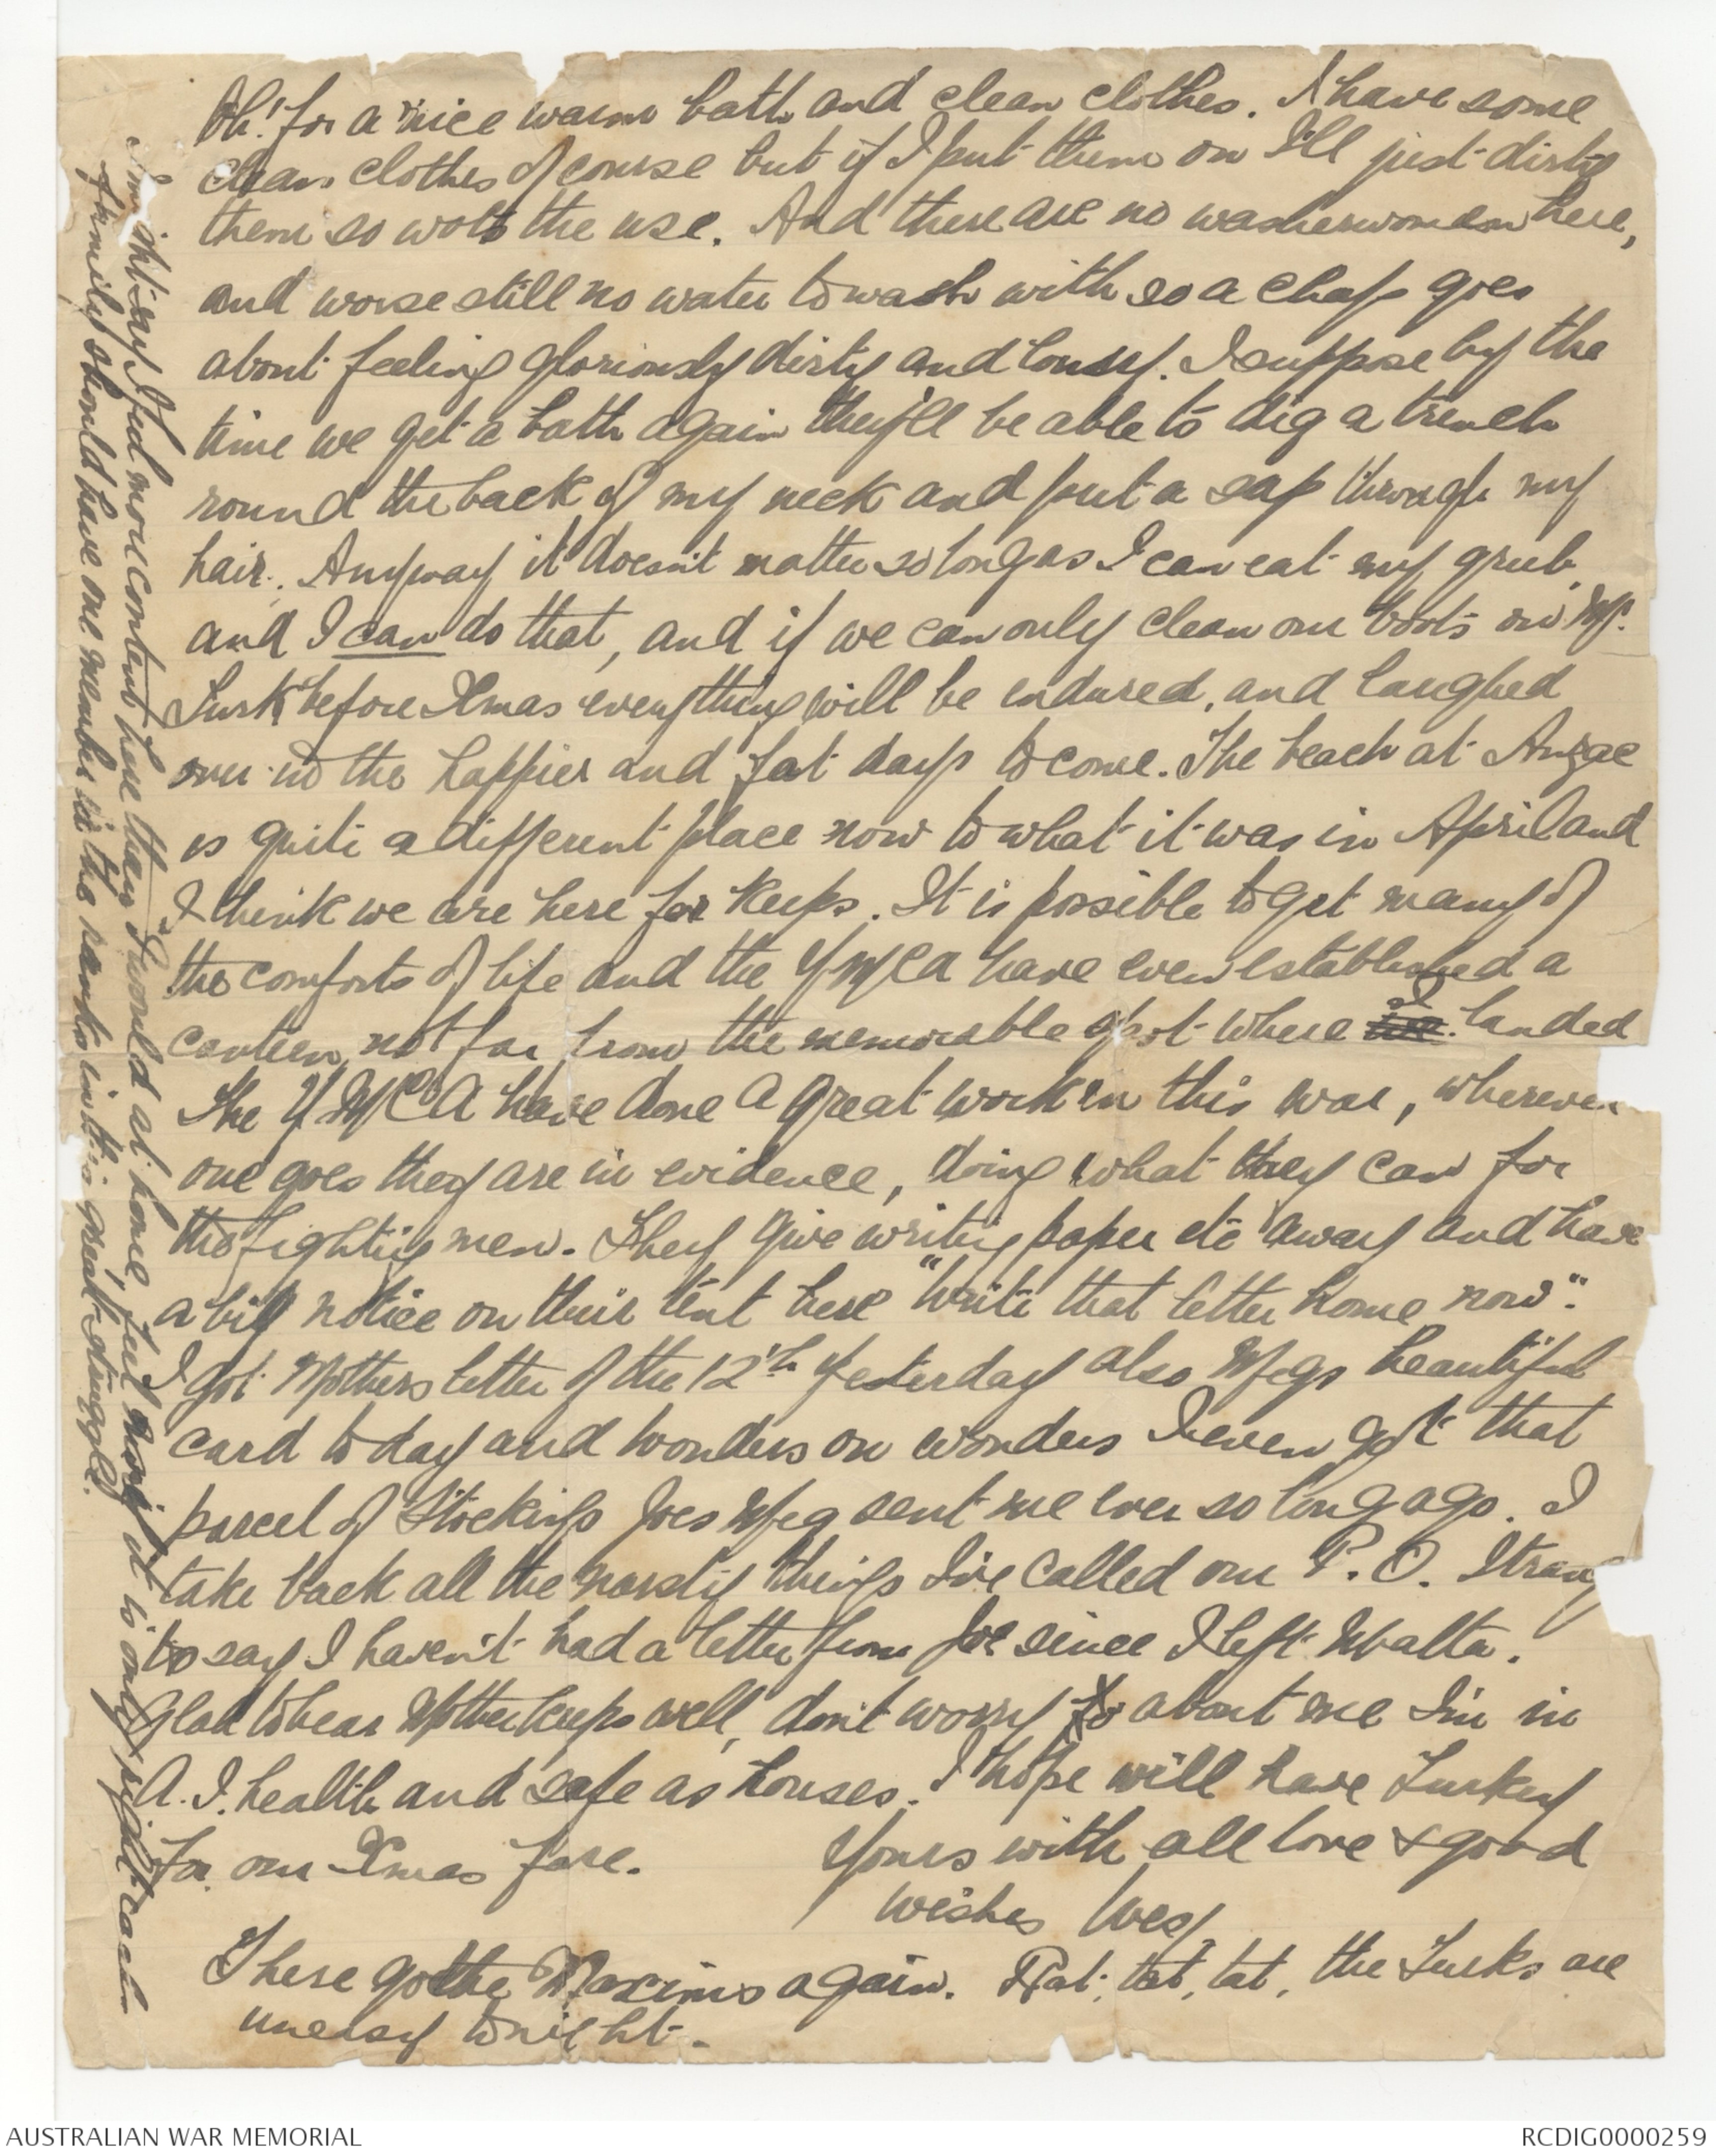 Oh! for a nice warm bath and clean clothes. I have some
clean clothes of course but if I put them on I'll just dirty
them so wots the use. And there are no washerwomen here,
and worse still no water to wash with so a chap goes
about feeling gloriously dirty and lousy. I suppose by the
time we get a bath again they'll be able to dig a trench
round the back of my neck and put a sap through my
hair. Anyway it doesn't matter so long as I can eat my grub
and I can do that, and if we can only clean our boots on Mr.
Turk before Xmas everything will be endured, and laughed
over in the happier and fat days to come. The beach at Anzac
is quite a different place now to what it was in April and
I think we are here for keeps. It is possible to get many of
the comforts of life and the YMCA have even established a
canteen not far from the memorable spot where I landed
The YMCA have done a great work in this war, wherever
one goes they are in evidence, doing what they can for
the fighting men. They give writing paper etc away and have
a big notice on their tent here "Write that letter home now".
I got Mothers letter of the 12th yesterday also Megs beautiful
card today and wonders on wonders I even got that
parcel of Stockings Joes Meg sent me ever so long ago. I
take back all the nasty things I've called our P.O. Strang
to say I haven't had a letter from Joe since I left Malta.
Glad to hear Mother keeps well, don't worry to about me I'm in
A.I. health and safe as houses. I hope will have Turkey
for our Xmas fare. Yours with all love & good
wishes Wes
There go the Maxims again. Rat, tat, tat, the Turks are
uneasy tonight.
I might say I feel more content here than I would at home, for it is only right each
family should have one member in the ranks in this great struggle.